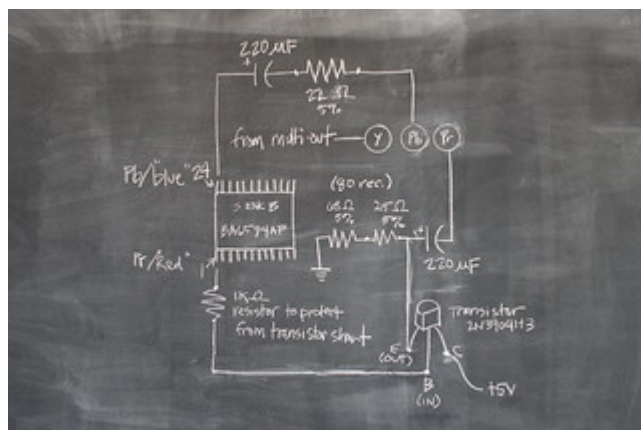 220 µF
+
22 Ω
5%
from multi-out
Y
Pb
Pr
Pb/"blue" 24
(80 rec.)
5%
5%
+
Pr/"Red" 1
220 µF
1KΩ
resistor to protect
from transistor short
Transistor
E
(OUT)
C
B
(IN)
+5V